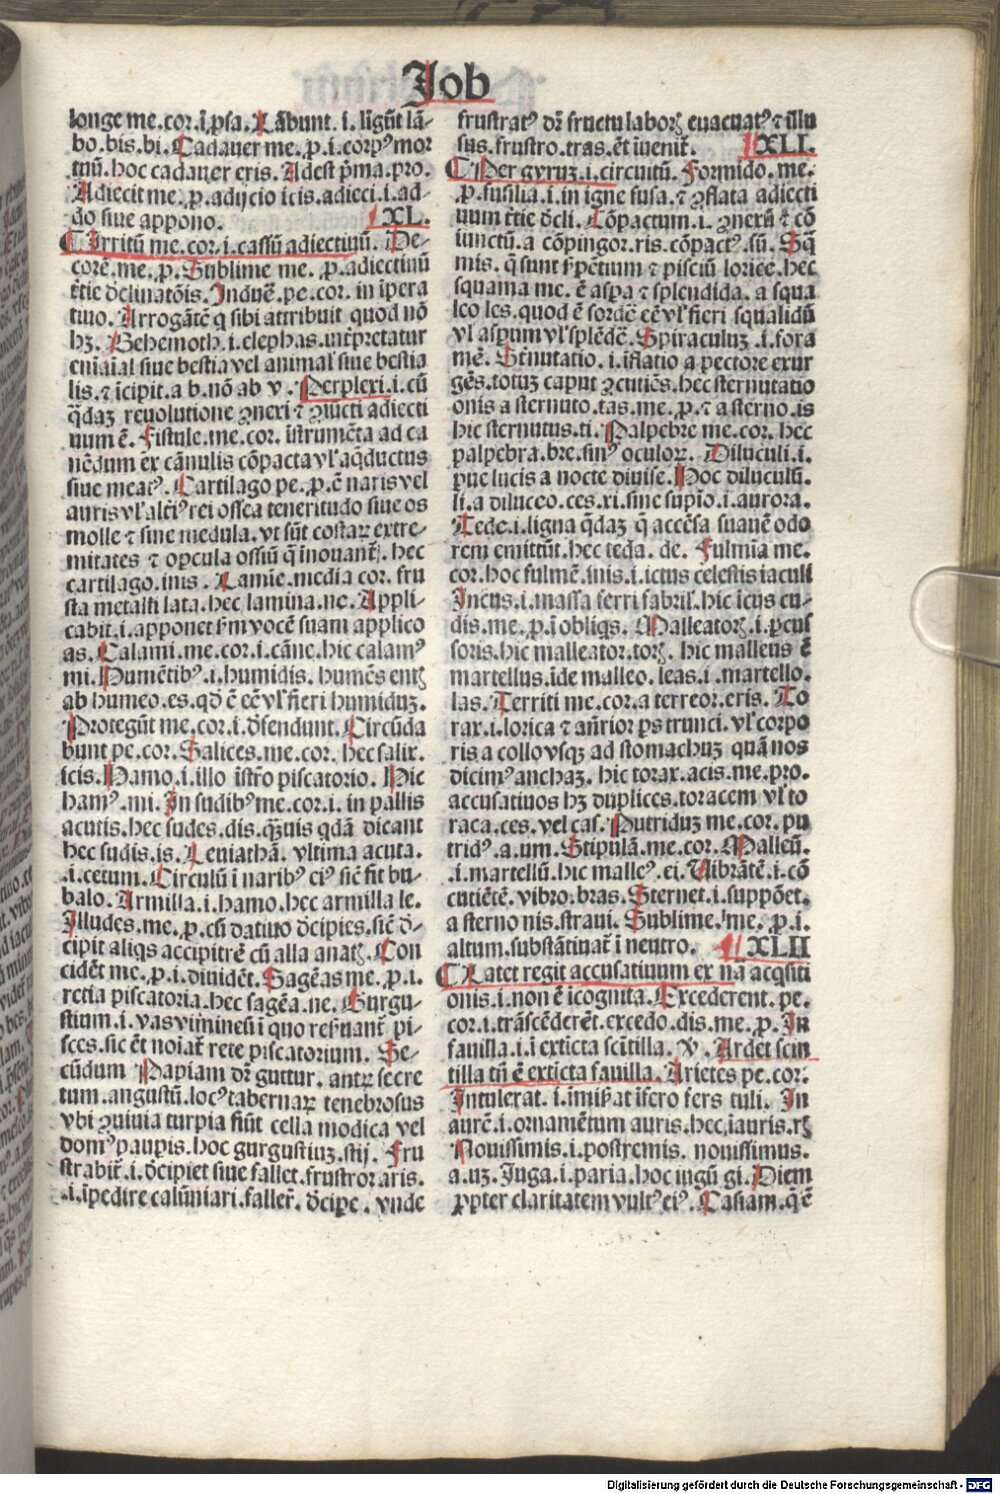 Job
longe me.cor.i psa. Lābunt.i. ligūt lā⸗
bo.bis.bi. Cadauer me.p.i.corpꝰ mor
tuū.hoc cadauer eris. Adest pma.pro.
Adiecit me.p.adijcio icis.adieci.i.ad⸗
do siue appono. XL.
Irritū me.cor.i.cassū adiectiuū. De⸗
corē.me.p. Sublime me.p.adiectiuū
Induē.pe.cor. in īpera
tiuo. Arrogātē q sibi attribuit quod nō
hꝫ. Behemoth.i.elephas.
aīal siue bestia vel animal siue bestia
lis.⁊ īcipit.a b.nō ab v. Perplexi.i.cū
q̄daꝫ reuolutione ꝯnexi ⁊ ꝯiūcti adiecti
uum ē. Fistule.me.cor. īstrumēta ad ca
nēdum ex cānulis cōpacta vl aq̄ductus
siue meatꝰ. Cartilago pe.p.ē naris vel
auris vl rei ossea teneritudo siue os
molle ⁊ sine medula. vt sūt costaꝝ extre⸗
mitates ⁊ opcula ossiū q̄ īnouant. hec
cartilago.inis. Lamie.media cor. fru
sta metalli lata.hec lamina.ne. Appli⸗
cabit.i.apponet vocē suam applico
as. Calami.me.cor.i.cāne.hic calamꝰ
mi. Humētibꝰ.i.humidis. humēs
ab humeo.es.qd ē eē vl fieri humiduꝫ.
Protegūt me.cor.i.dfendunt. Circūda
bunt pe.cor. Salices.me.cor. hec salix.
icis. Hamo.i.illo īstro piscatorio. Hic
hamꝰ.mi. In sudibꝰ me.cor.i. in pallis
acutis.hec sudes.dis.q̄uis qdā dicant
hec sudis.is. Leuiathā. vltima acuta.
.i.cetum. Circulū ī naribꝰ eiꝰ sic fit bu⸗
balo. Armilla.i.hamo.hec armilla le.
Illudes.me.p.cū datiuo dcipies.sic d⸗
cipit aliqs accipitrē cū alla Con
cidēt me.p.i.diuidēt. Sagēas me.p.i.
retia piscatoria.hec sagēa.ne. Gurgu⸗
stium.i.vas vimineū ī quo pi⸗
sces.sic ēt rete piscatorium. Se⸗
cūdum Papiam dr guttur. antꝝ secre
tum.angustū.locꝰ tabernaꝝ tenebrosus
vbi ꝯuiuia turpia fiūt cella modica vel
domꝰ paupis.hoc gurgustiuꝫ.stij. Fru
strabit.i.dcipiet siue fallet.frustror aris.
.i.īpedire calūniari.faller. dcipe.vnde
frustratꝰ dr fructu laboꝝ euacuatꝰ ⁊ illu
sus.frustro.tras.ēt īuenit. XLI.
Per gyruꝫ.i.circuitū. Formido.me.
.p.fusilia.i.in igne fusa.⁊ ꝯflata adiecti
uum Cōpactum.i. ꝯnexū ⁊ cō
iunctū.a cōpingor.ris.cōpactꝰ.sū. Sq̄
mis. q̄ sunt ⁊ pisciū lorice.hec
squama me. ē aspa ⁊ splendida. a squa
leo les.quod ē sordē eē vl fieri squalidū
vl aspum vl splēdē. Spiraculuꝫ.i.fora
mē. Strnutatio.i.īflatio a pectore exur
gēs.totuꝫ caput ꝯcutiēs.hec sternutatio
onis a sternuto.tas.me.p.⁊ a sterno.is
hic sternutus.ti. Palpebre me.cor. hec
palpebra.bre.sinꝰ oculoꝝ. Diluculi.i.
pue lucis a nocte diuise. Hoc diluculū.
li.a diluceo.ces.xi.sine supio.i.aurora.
Tede.i.ligna q̄daꝫ q accēsa suauē odo
rem emittūt.hec teda.de. Fulmīa me.
cor.hoc fulmē.inis.i.ictus celestis iaculi
Incus.i.massa ferri fabril.hic īcus cu⸗
dis.me.p.ī obliqs. Malleatoꝝ.i.pcus
soris.hic malleator.toꝝ. hic malleus ē
martellus.īde malleo. leas.i.martello.
las. Territi me.cor.a terreor.eris. To
rax.i.lorica ⁊ anrior ps trunci. vl corpo
ris a collo vsqꝫ ad stomachuꝫ quā nos
dicimꝰ anchaꝫ. hic torax.acis.me.pro.
accusatiuos hꝫ duplices.toracem vl to
raca.ces. vel cas. Putriduꝫ me.cor. pu
tridꝰ.a.um. Stipulā.me.cor. Malleū.
.i.martellū.hic mallꝰ.ei. Vibrātē.i.cō
cutiētē.vibro.bras. Sternet.i.suppōet.
a sterno nis.straui. Sublime.me.p.i.
altum.substātiuat ī neutro. XLII
Latet regit accusatiuum ex na acqsiti
onis.i.non ē īcognita. Excederent.pe.
cor.i.trāscēderēt.excedo.dis.me.p. In
fauilla.i.ī exticta scītilla. V. Ardet scin
tilla tn ē exticta fauilla. Arietes pe.cor.
Intulerat.i.īmisat īfero fers tuli. In
aurē.i.ornamētum auris.hec īauris.
Nouissimis.i.postremis. nouissimus.
a.uꝫ. Iuga.i.paria.hoc iugū gi. Diem
ppter claritatem vultꝰ eiꝰ. Casiam.q̄ ē
Digitalisierung gefördert durch die Deutsche Forschungsgemeinschaft - DFG